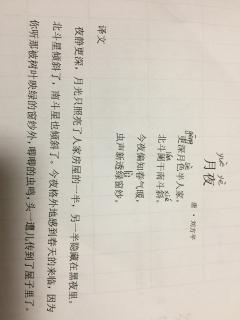 yuè yè
月夜
唐·刘方平
更深月色半人家，
北斗阑干南斗斜。
今夜偏知春气暖，
虫声新透绿窗纱。
译文
夜静更深，月光只照亮了人家房屋的一半，另一半隐藏在黑夜里。
北斗星倾斜了，南斗星也倾斜了。今夜格外地感到春天的来临，因为
你听那被树叶映绿的窗纱外，唧唧的虫鸣，头一遭儿传到了屋子里了。